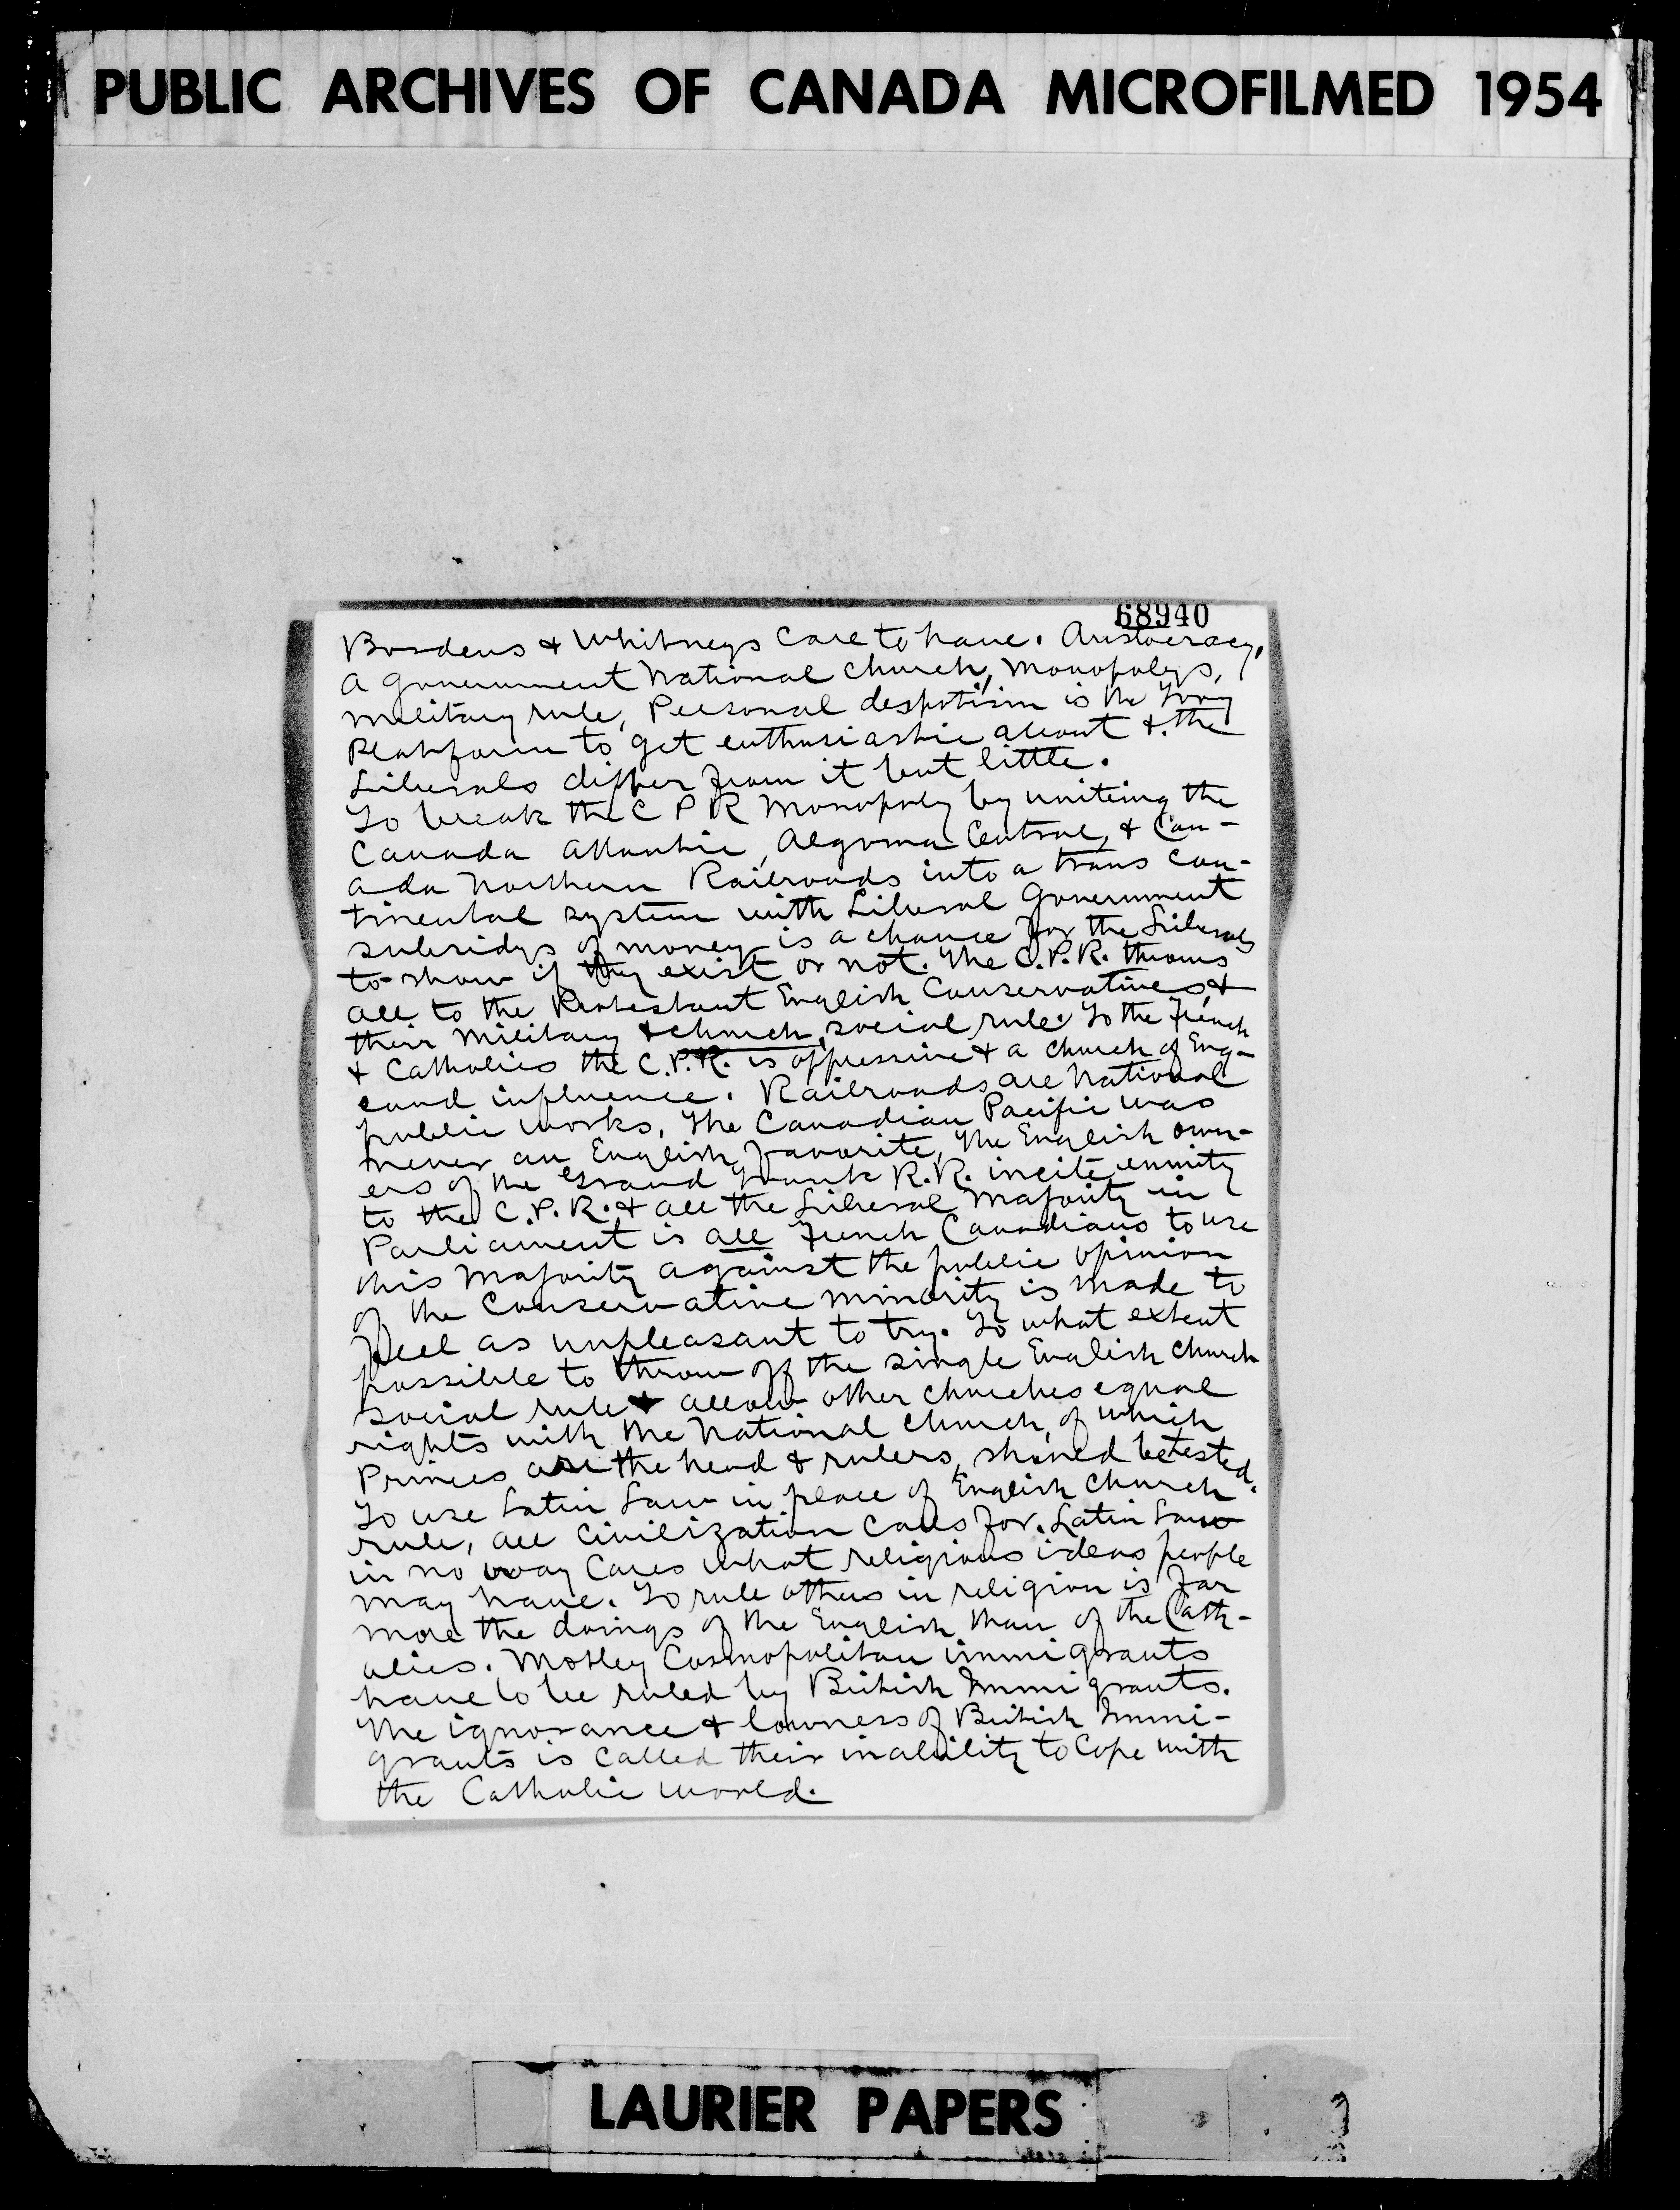 PUBLIC ARCHIVES OF CANADA MICROFILMED 1954
68940
Bordens & Whitneys care to have. Aristocracy,
a government National Church, Monopolys,
military rule, Personal despotism is the Tory
Platform to get enthusiastic about & the
Liberals differ from it but little.
To break the C P R Monopoly by uniting the
Canada Atlantic, Algoma Central, & Can-
ada Northern Railroads into a trans con-
tinental system with Liberal Government
subsidys of money is a chance for the Liberals
to show if they exist or not. The C.P.R. throws
all to the Protestant English Conservatives, &
their Military & church, social rule. To the French
& Catholics the C.P.R. is oppressive & a church of Eng-
land influence. Railroads are National
public works. The Canadian Pacific was
never an English favorite, The English own-
ers of the Grand Trunk R.R. incite enmity
to the C.P.R. & all the Liberal Majority in
Parliament is all French Canadians to use
this Majority against the public opinion
of the Conservative minority is made to
feel as unpleasant to try. To what extent
possible to throw off the single English church
social rule & allow other churches equal
rights with the National church, of which
Princes are the head & rulers, should be tested.
To use Latin Law in place of English Church
rule, all civilization calls for. Latin Law
in no way cares what religious ideas people
may have. To rule others in religion is far
more the doings of the English than of the Cath-
olics. Motley Cosmopolitan immigrants
have to be ruled by British Immigrants.
The ignorance & lowness of British Immi-
grants is called their inability to cope with
the Catholic world.
LAURIER PAPERS